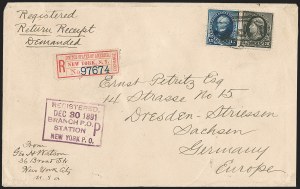 Registered
Return Receipt
Demanded
R
NEW YORK, N.Y.
97674
REGISTERED
DEC 30 1891
BRANCH P.O.
STATION P
NEW YORK P.O.
Ernst Petritz Esq
14 Strasse No 15
Dresden-Striessen
Sachsen
Germany
Europe
From
Geo. H. Watson
36 Broad St
New York City
U.S.A